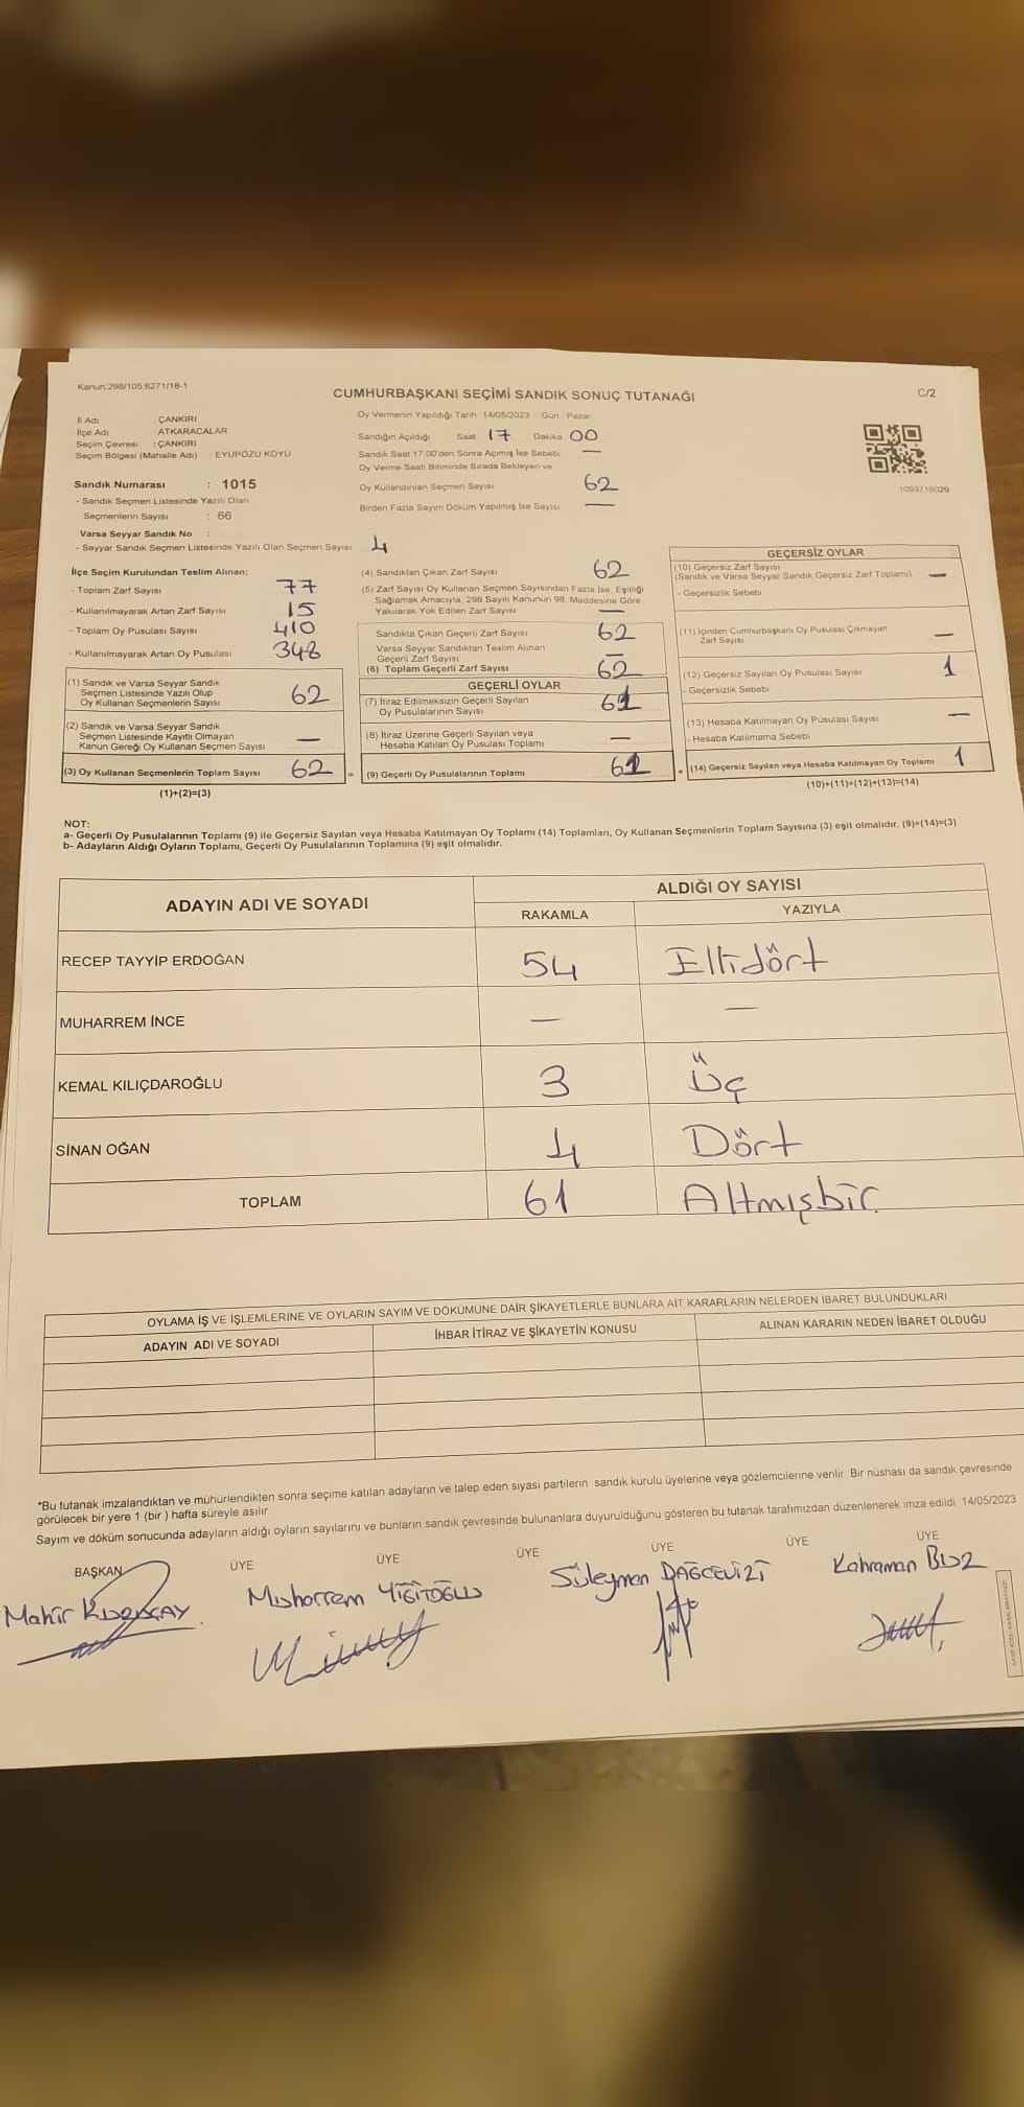 Kanun:298/105,6271/18-1
CUMHURBAŞKANI SEÇİMİ SANDIK SONUÇ TUTANAĞI
C/2
İl Adı : ÇANKIRI
İlçe Adı : ATKARACALAR
Seçim Çevresi : ÇANKIRI
Seçim Bölgesi (Mahalle Adı) : EYÜPÖZÜ KÖYÜ
Sandık Numarası : 1015
- Sandık Seçmen Listesinde Yazılı Olan
Seçmenlerin Sayısı : 66
Varsa Seyyar Sandık No :
- Seyyar Sandık Seçmen Listesinde Yazılı Olan Seçmen Sayısı 4
Oy Vermenin Yapıldığı Tarih : 14/05/2023 - Gün : Pazar
Sandığın Açıldığı Saat 17 Dakika 00
Sandık Saat 17:00'den Sonra Açılmış İse Sebebi —
Oy Verme Saati Bitiminde Sırada Bekleyen ve
Oy Kullandırılan Seçmen Sayısı 62
Birden Fazla Sayım Döküm Yapılmış İse Sayısı —
İlçe Seçim Kurulundan Teslim Alınan;
- Toplam Zarf Sayısı 77
- Kullanılmayarak Artan Zarf Sayısı 15
- Toplam Oy Pusulası Sayısı 410
- Kullanılmayarak Artan Oy Pusulası 348
(1) Sandık ve Varsa Seyyar Sandık
Seçmen Listesinde Yazılı Olup
Oy Kullanan Seçmenlerin Sayısı 62
(2) Sandık ve Varsa Seyyar Sandık
Seçmen Listesinde Kayıtlı Olmayan
Kanun Gereği Oy Kullanan Seçmen Sayısı —
(3) Oy Kullanan Seçmenlerin Toplam Sayısı 62
(1)+(2)=(3)
(4) Sandıktan Çıkan Zarf Sayısı 62
(5) Zarf Sayısı Oy Kullanan Seçmen Sayısından Fazla İse, Eşitliği
Sağlamak Amacıyla, 298 Sayılı Kanunun 98. Maddesine Göre
Yakılarak Yok Edilen Zarf Sayısı —
Sandıkta Çıkan Geçerli Zarf Sayısı 62
Varsa Seyyar Sandıktan Teslim Alınan
Geçerli Zarf Sayısı —
(6) Toplam Geçerli Zarf Sayısı 62
GEÇERLİ OYLAR
(7) İtiraz Edilmeksizin Geçerli Sayılan
Oy Pusulalarının Sayısı 61
(8) İtiraz Üzerine Geçerli Sayılan veya
Hesaba Katılan Oy Pusulası Toplamı —
= (9) Geçerli Oy Pusulalarının Toplamı 61
GEÇERSİZ OYLAR
(10) Geçersiz Zarf Sayısı
(Sandık ve Varsa Seyyar Sandık Geçersiz Zarf Toplamı) —
- Geçersizlik Sebebi
(11) İçinden Cumhurbaşkanı Oy Pusulası Çıkmayan
Zarf Sayısı —
(12) Geçersiz Sayılan Oy Pusulası Sayısı 1
- Geçersizlik Sebebi
(13) Hesaba Katılmayan Oy Pusulası Sayısı —
- Hesaba Katılmama Sebebi
+ (14) Geçersiz Sayılan veya Hesaba Katılmayan Oy Toplamı 1
(10)+(11)+(12)+(13)=(14)
NOT:
a- Geçerli Oy Pusulalarının Toplamı (9) ile Geçersiz Sayılan veya Hesaba Katılmayan Oy Toplamı (14) Toplamları, Oy Kullanan Seçmenlerin Toplam Sayısına (3) eşit olmalıdır. (9)+(14)=(3)
b- Adayların Aldığı Oyların Toplamı, Geçerli Oy Pusulalarının Toplamına (9) eşit olmalıdır.
ADAYIN ADI VE SOYADI
ALDIĞI OY SAYISI
RAKAMLA YAZIYLA
RECEP TAYYİP ERDOĞAN 54 Ellidört
MUHARREM İNCE — —
KEMAL KILIÇDAROĞLU 3 Üç
SİNAN OĞAN 4 Dört
TOPLAM 61 Altmışbir
OYLAMA İŞ VE İŞLEMLERİNE VE OYLARIN SAYIM VE DÖKÜMÜNE DAİR ŞİKAYETLERLE BUNLARA AİT KARARLARIN NELERDEN İBARET BULUNDUKLARI
ADAYIN ADI VE SOYADI İHBAR İTİRAZ VE ŞİKAYETİN KONUSU ALINAN KARARIN NEDEN İBARET OLDUĞU
*Bu tutanak imzalandıktan ve mühürlendikten sonra seçime katılan adayların ve talep eden siyasi partilerin sandık kurulu üyelerine veya gözlemcilerine verilir. Bir nüshası da sandık çevresinde
görülecek bir yere 1 (bir) hafta süreyle asılır
Sayım ve döküm sonucunda adayların aldığı oyların sayılarını ve bunların sandık çevresinde bulunanlara duyurulduğunu gösteren bu tutanak tarafımızdan düzenlenerek imza edildi. 14/05/2023
BAŞKAN ÜYE ÜYE ÜYE ÜYE ÜYE ÜYE
Mahir Muharrem YİĞİTOĞLU Süleyman DAĞCEVİZİ Kahraman